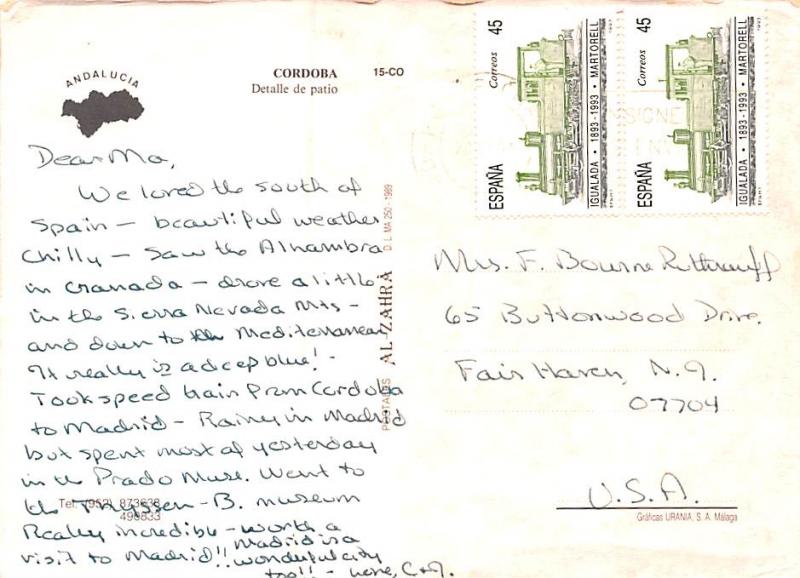 ANDALUCIA
CORDOBA 15-CO
Detalle de patio
Dear Ma,
We loved the south of
Spain - beautiful weather
Chilly - saw the Alhambra
in Granada - drove a little
in the Sierra Nevada Mts -
and down to the Mediterranean
It really is a deep blue! -
Took speed train from Cordoba
to Madrid - Rainy in Madrid
but spent most of yesterday
in the Prado Muse. Went to
the Thyssen - B. museum
Really incredible - worth a
visit to Madrid!! Madrid is a
wonderful city
too!! - Love, C + J.
Tel. (952) 873638
490833
POSTALES AL-ZAHRA D. L. MA 250 - 1989
45
Correos
ESPAÑA
IGUALADA • 1893-1993 • MARTORELL
45
Correos
ESPAÑA
IGUALADA • 1893-1993 • MARTORELL
Mrs. F. Bourne Ruthrauff
65 Buttonwood Drive,
Fair Haven, N.J.
07704
U.S.A.
Gráficas URANIA, S. A. Málaga